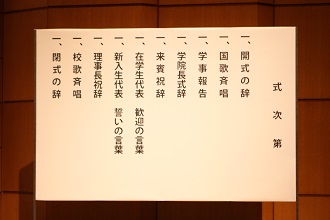 式次第
一、開式の辞
一、国歌斉唱
一、学事報告
一、学院長式辞
一、来賓祝辞
一、在学生代表　歓迎の言葉
一、新入生代表　誓いの言葉
一、理事長祝辞
一、校歌斉唱
一、閉式の辞